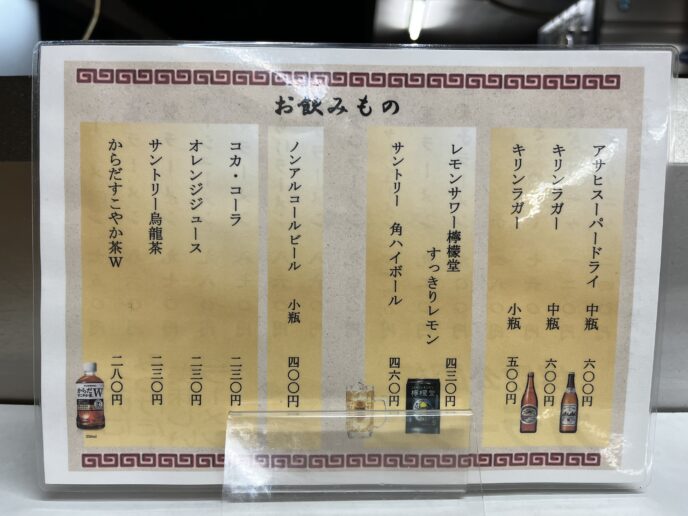 お飲みもの
アサヒスーパードライ 中瓶 六〇〇円
キリンラガー 中瓶 六〇〇円
キリンラガー 小瓶 五〇〇円
レモンサワー檸檬堂
すっきりレモン 四三〇円
サントリー 角ハイボール 四六〇円
ノンアルコールビール 小瓶 四〇〇円
コカ・コーラ 二三〇円
オレンジジュース 二三〇円
サントリー烏龍茶 二三〇円
からだすこやか茶W 二八〇円
檸檬堂
からだ
すこやか茶
W